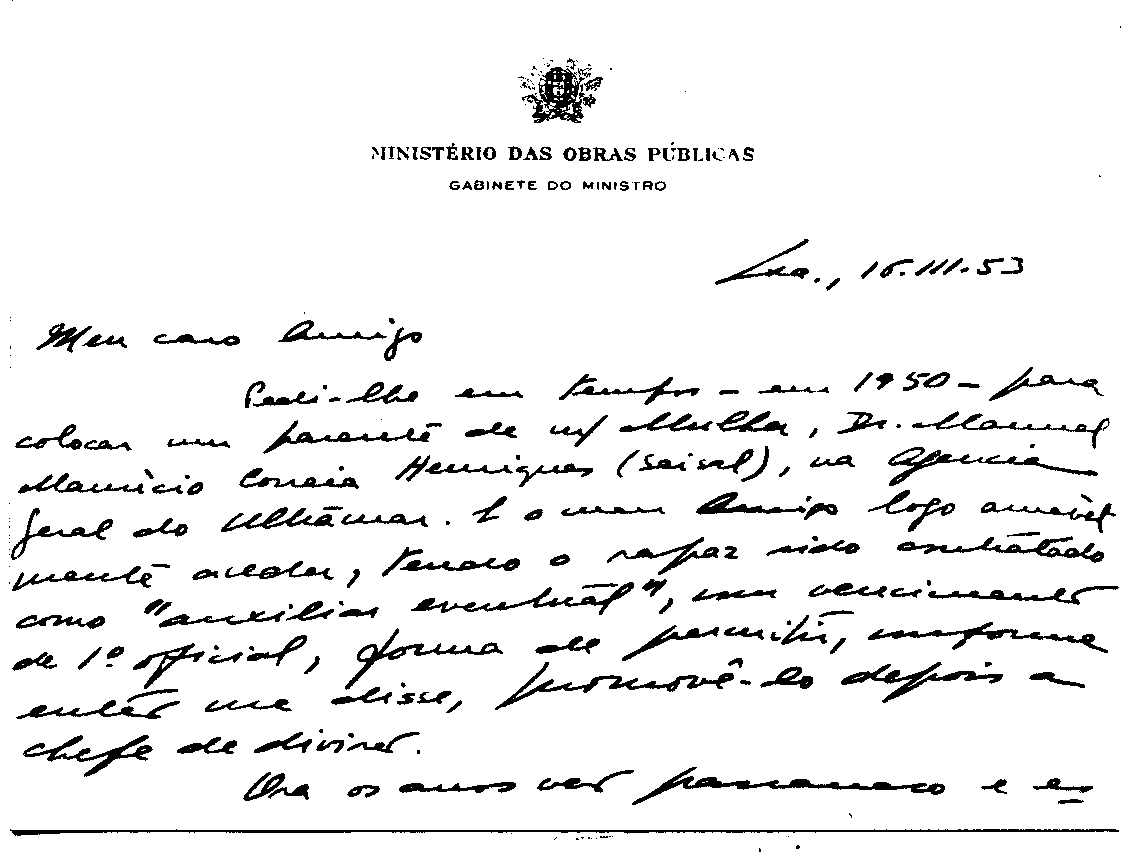 MINISTÉRIO DAS OBRAS PÚBLICAS
GABINETE DO MINISTRO
Lxa., 16.III.53
Meu caro Amigo
Pedi-lhe em tempos - em 1950 - para
colocar um parente de m/ Mulher, Dr. Manuel
Mauricio Correia Henriques (Seisal), na Agencia
Geral do Ultramar. E o meu Amigo logo amavel
mente acedeu, tendo o rapaz sido contratado
como "auxiliar eventual", com vencimento
de 1º official, forma de permitir, conforme
então me disse, promovê-lo depois a
chefe de divisão.
Ora os anos vão passando e es